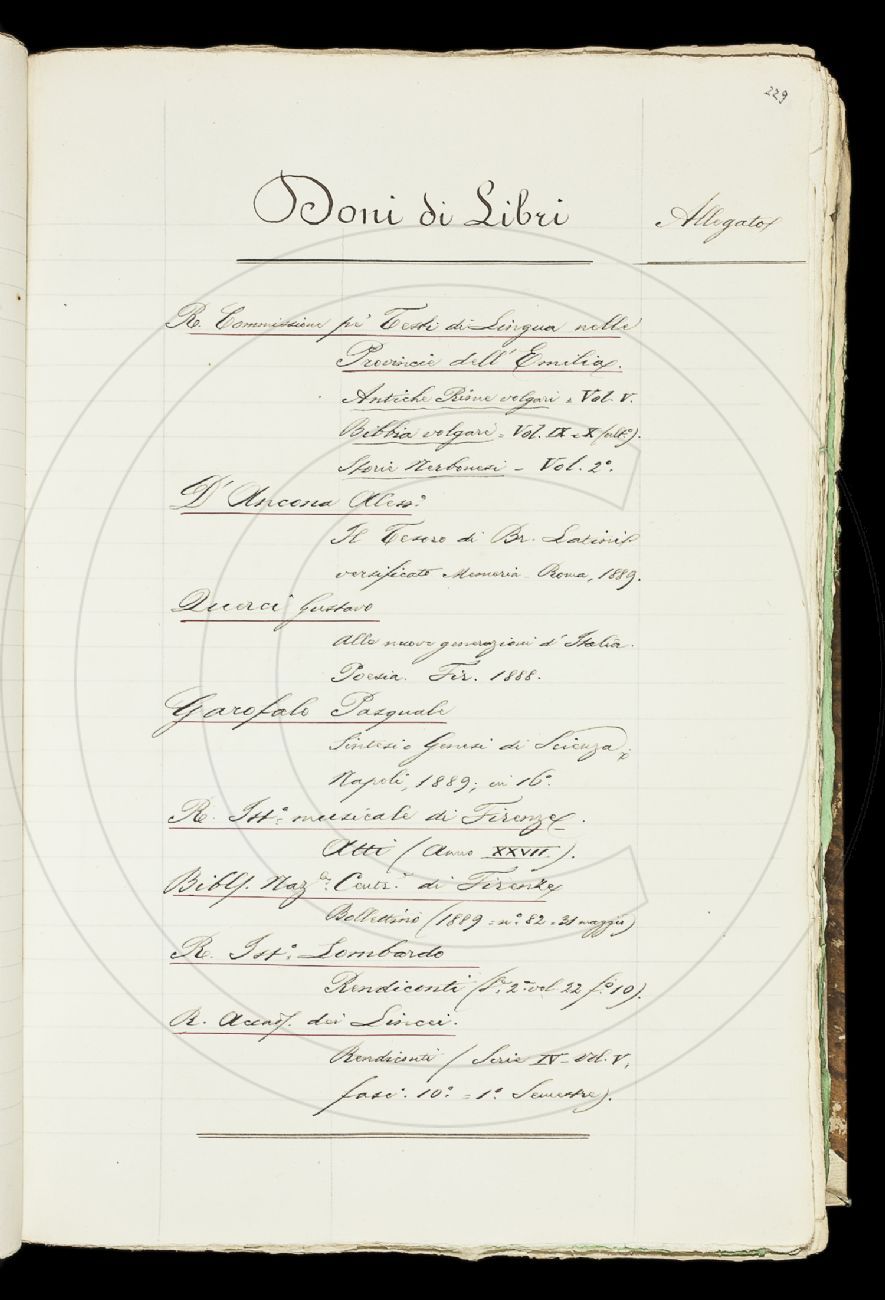 229
Doni di Libri
Allegato
R. Commissione pi' Testi di Lingua nelle
Provincie dell' Emilia.
Antiche Rime volgari = Vol. V.
Bibbia volgare = Vol. IX e X (ult°).
Storie Nerbonesi - Vol. 2°.
D'Ancona Aless°
Il Tesoro di Br. Latini
versificato Memoria - Roma, 1889.
Querci Gustavo
Alle nuove generazioni d'Italia.
Poesia. Fir. 1888.
Garofalo Pasquale
Sintesi e Genesi di Scienza;
Napoli, 1889; in 16°.
R. Ist°: musicale di Firenze.
Atti (Anno XXVII.).
Bibl. Naz.le Centr. di Firenze
Bollettino (1889 = n° 82 = 31 maggio)
R. Ist°: Lombardo
Rendiconti (S. 2ª vol 22 f° 10).
R. Accad. dei Lincei.
Rendiconti (Serie IV - Vol. V,
fasc°. 10° = 1° Semestre).